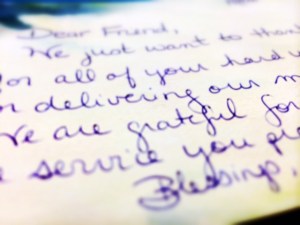 Dear Friend,
We just want to than
for all of your hard w
or delivering our m
We are grateful for
e service you pro
Blessings,